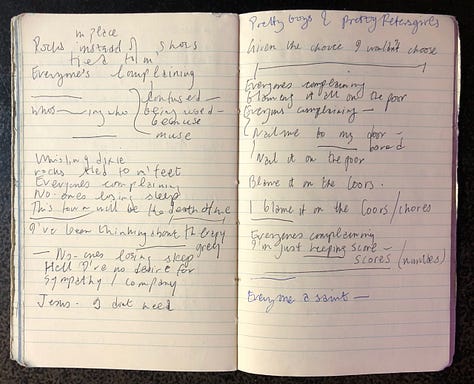 in place
Rocks instead of shoes
tied to m
Everyone's complaining
confused —
whos — ing who being used —
bemuse
muse
Whistling dixie
rocks tied to m' feet
Everyones complaining
No-ones losing sleep
This town will be the death of me
I've been thinking about therapy
grey
— No-ones losing sleep
Hell I've no desire for
sympathy / company
Jesus. I dont need
Pretty boys & pretty
Given the choice I wouldn't choose
Everyones complaining
blaming it all on the poor
Everyones complaining —
Nail me to my door —
board
Nail it on the poor
Blame it on the Coors.
I blame it on the Coors / chores
Everyones complaining
I'm just keeping score —
scores / (numbers)
Everyone a saint —